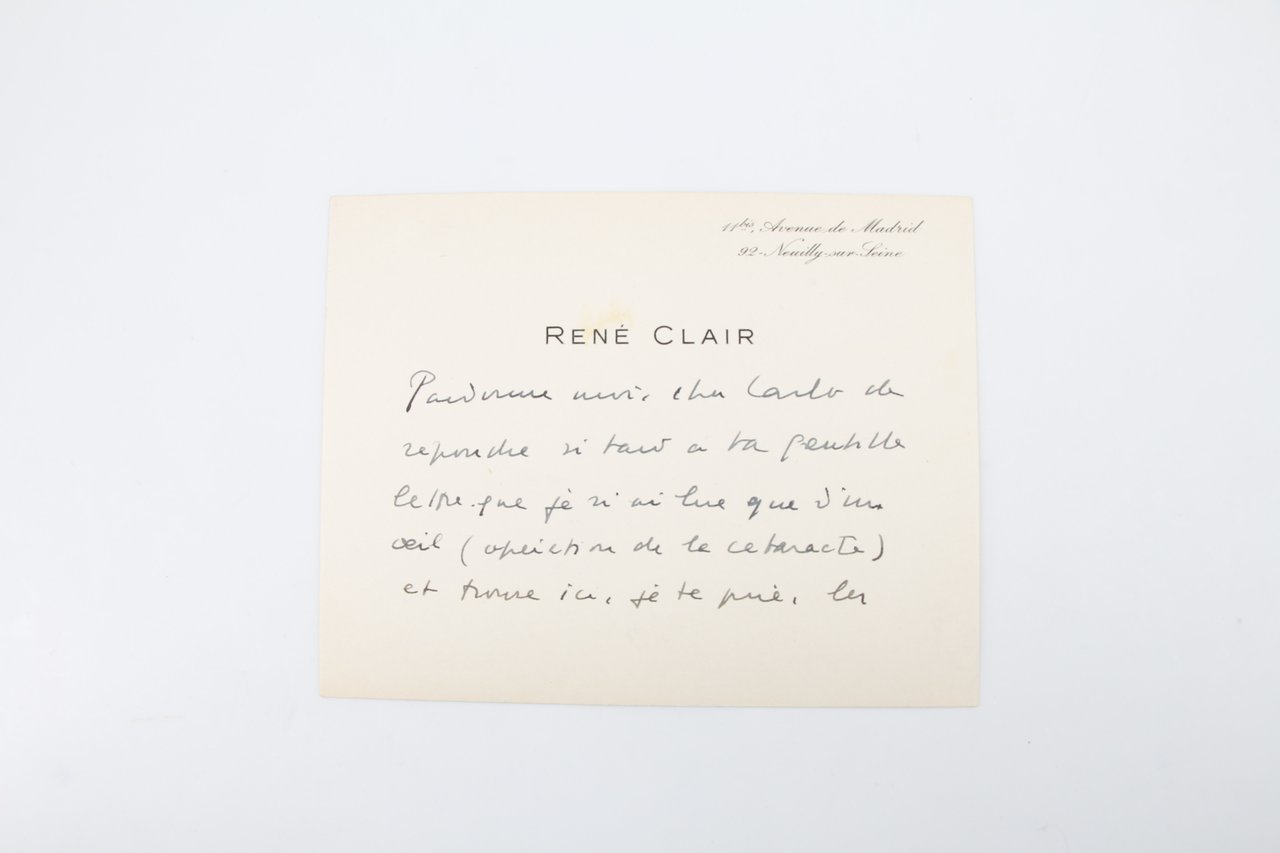 11bis, Avenue de Madrid
92-Neuilly-sur-Seine
RENÉ CLAIR
Pardonne moi, cher Carlo de
repondre si tard a ta gentille
lettre que je n'ai lue que d'un
œil (opération de la cataracte)
et trouve ici, je te prie, les